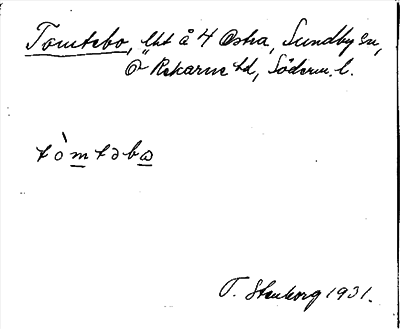 Tomtebo, lht å 4 Östra, Sundby sn,
Ö Rekarne hd, Söderm. l.
tòmtəbω
T. Stenborg 1931.